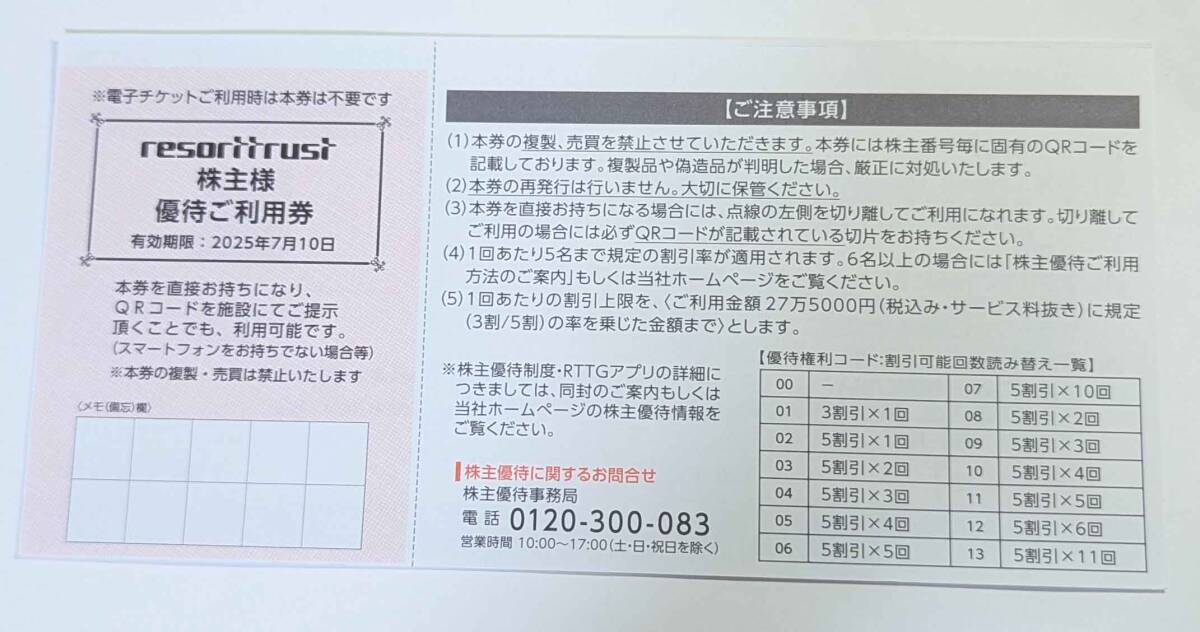 ※電子チケットご利用時は本券は不要です
resorttrust
株主様
優待ご利用券
有効期限：2025年7月10日
本券を直接お持ちになり、
QRコードを施設にてご提示
頂くことでも、利用可能です。
(スマートフォンをお持ちでない場合等)
※本券の複製・売買は禁止いたします
〈メモ(備忘)欄〉
【ご注意事項】
(1)本券の複製、売買を禁止させていただきます。本券には株主番号毎に固有のQRコードを
記載しております。複製品や偽造品が判明した場合、厳正に対処いたします。
(2)本券の再発行は行いません。大切に保管ください。
(3)本券を直接お持ちになる場合には、点線の左側を切り離してご利用になれます。切り離して
ご利用の場合には必ずQRコードが記載されている切片をお持ちください。
(4)1回あたり5名まで規定の割引率が適用されます。6名以上の場合には「株主優待ご利用
方法のご案内」もしくは当社ホームページをご覧ください。
(5)1回あたりの割引上限を、〈ご利用金額27万5000円(税込み・サービス料抜き)に規定
(3割/5割)の率を乗じた金額まで〉とします。
※株主優待制度・RTTGアプリの詳細に
つきましては、同封のご案内もしくは
当社ホームページの株主優待情報を
ご覧ください。
株主優待に関するお問合せ
株主優待事務局
電話 0120-300-083
営業時間 10:00～17:00(土・日・祝日を除く)
【優待権利コード:割引可能回数読み替え一覧】
00 － 07 5割引×10回
01 3割引×1回 08 5割引×2回
02 5割引×1回 09 5割引×3回
03 5割引×2回 10 5割引×4回
04 5割引×3回 11 5割引×5回
05 5割引×4回 12 5割引×6回
06 5割引×5回 13 5割引×11回